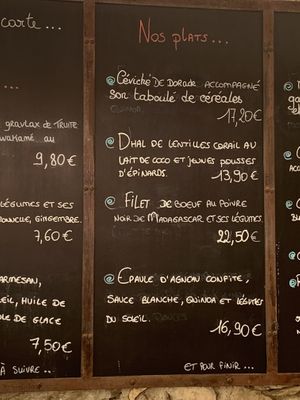 carte...
...
gravlax de TRUITE
wakamé au
9,80€
LÉGUMES ET SES
GINGEMBRE.
7,60€
PARMESAN,
HUILE DE
DE GLACE
7,50€
À SUIVRE...
Nos plats...
Céviché DE DORADE ACCOMPAGNÉ
son taboulé de céréales
17,20€
DHAL DE LENTILLES CORAIL AU
LAIT DE COCO ET JEUNES POUSSES
D'ÉPINARDS.
13,90€
FILET DE BOEUF AU POIVRE
NOIR DE MADAGASCAR ET SES LÉGUMES
22,50€
EPAULE D'AGNEAU CONFITE,
SAUCE BLANCHE, QUINOA ET LÉGUMES
DU SOLEIL.
16,90€
ET POUR FINIR...